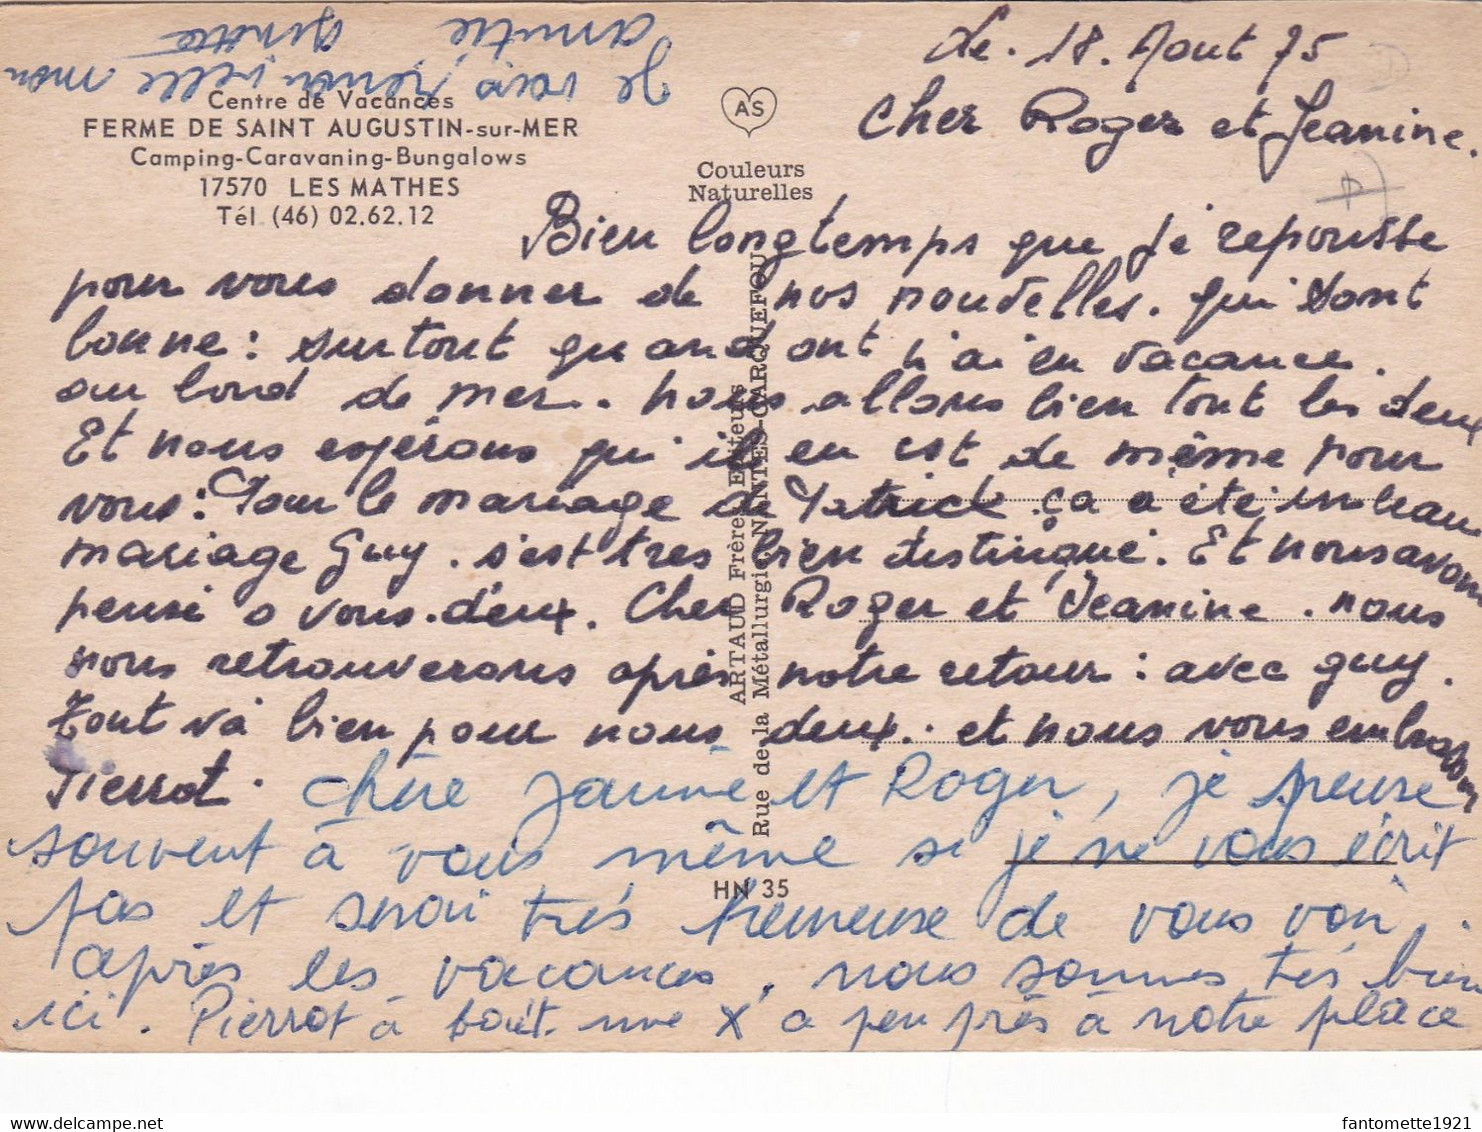 Le. 18. Aout 75
Cher Roger et Jeanine.
Centre de Vacances
FERME DE SAINT AUGUSTIN-sur-MER
Camping-Caravaning-Bungalows
17570 LES MATHES
Tél. (46) 02.62.12
AS
Couleurs
Naturelles
Bien longtemps que je repousse
pour vous donner de nos nouvelles. qui sont
bonne: surtout quand ont n'ai en vacance.
au bord de mer. nous allons bien tout les deux
Et nous espérons qui il en est de même pour
vous: Pour le mariage de Patrick ça a été un beau
mariage Guy. s'est tres bien distingué. Et nous avons
pensé a vous deux. Cher Roger et Jeanine. nous
nous retrouverons après notre retour: avec guy.
tout va bien pour nous deux. et nous vous embrasson
Pierrot.
chère Janine et Roger, je pense
souvent à vous même si je ne vous écrit
pas et serai très heureuse de vous voir
après les vacances, nous sommes très bien
ici. Pierrot à une X a peu près à notre place
Je vais renouvelle mon
amitié Ginette
ARTAUD Frères Editeurs
Rue de la Métallurgie NANTES-CARQUEFOU
HN 35
fantomette1921